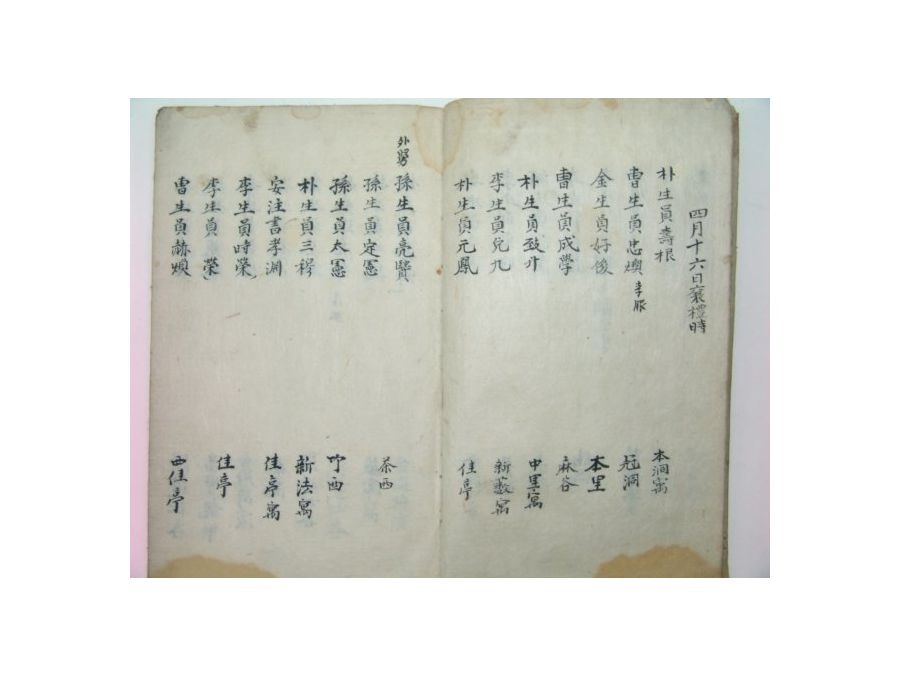 四月十六日襄禮時
朴生員壽根
本洞寓
曺生員忠煥
冠洞
金生員好後
本里
曺生員成學
麻谷
朴生員致升
中里寓
李生員允九
新寓
朴生員元鳳
佳亭
孫生員亮賢
茶西
孫生員定憲
孫生員太憲
西
朴生員三稷
新法寓
安注書孝淵
佳亭寓
李生員時榮
佳亭
李生員榮
曺生員赫煥
西佳亭